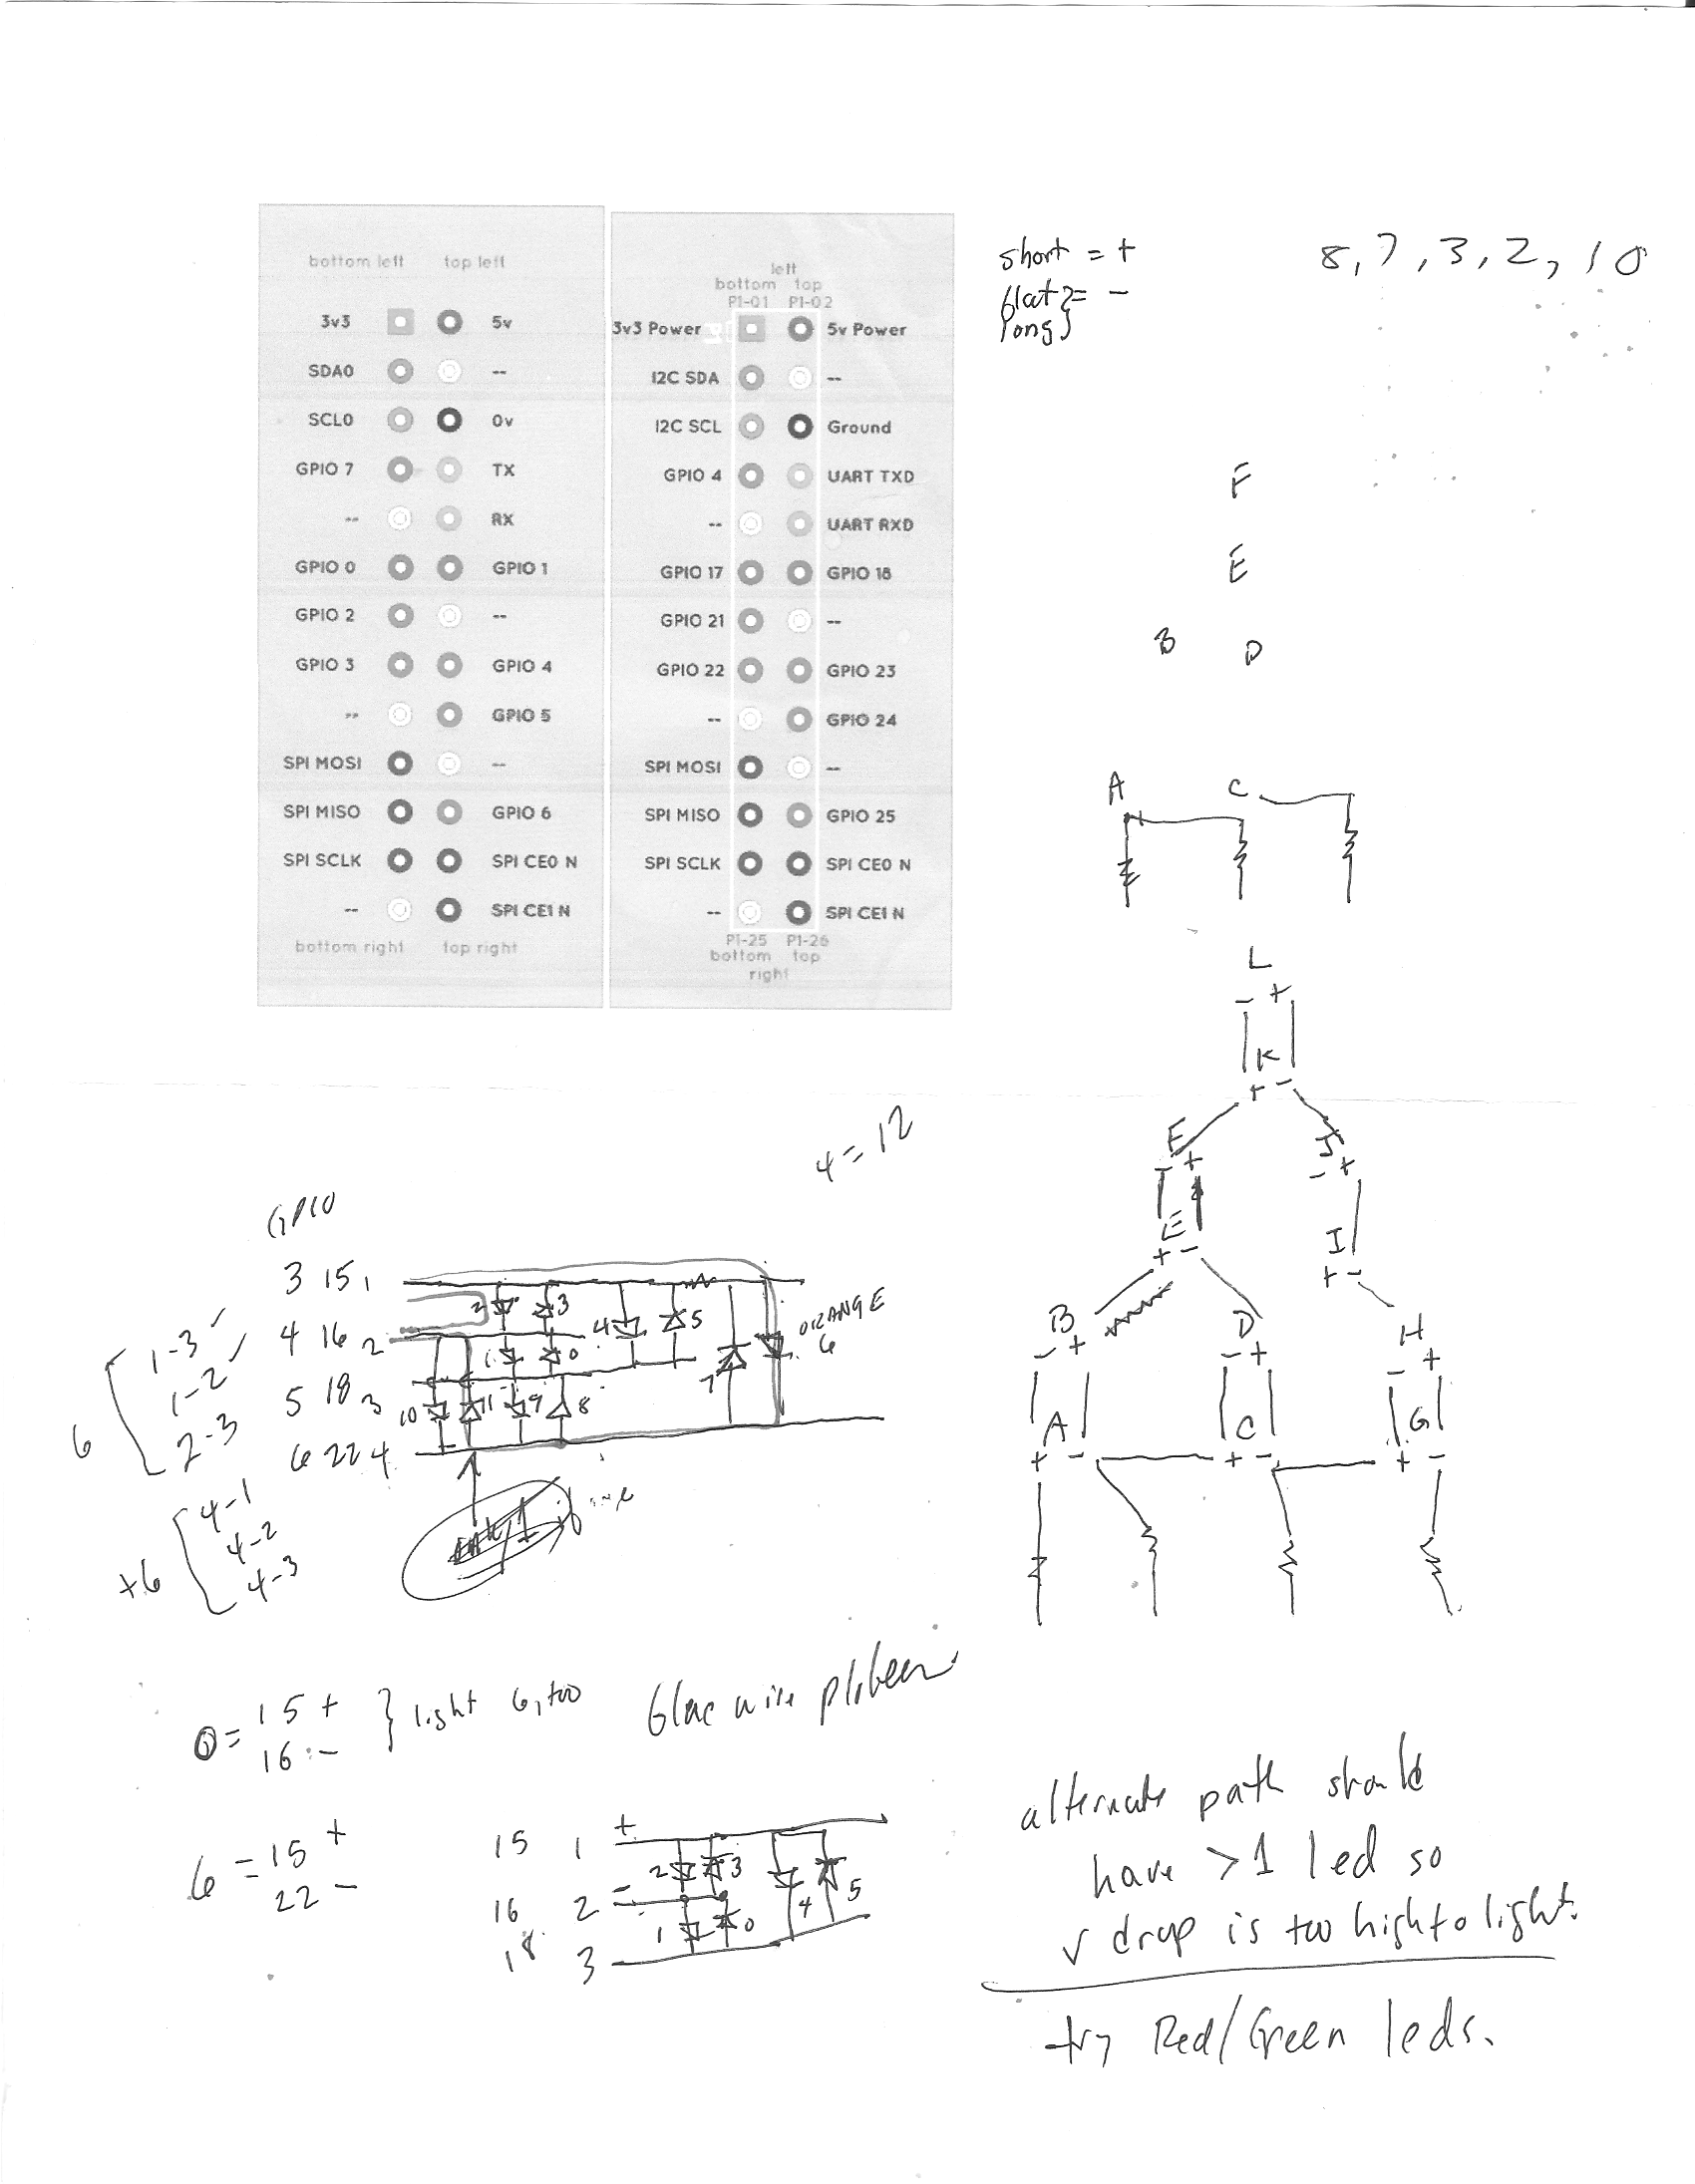 bottom left top left
3v3 5v
SDA0 --
SCL0 0v
GPIO 7 TX
-- RX
GPIO 0 GPIO 1
GPIO 2 --
GPIO 3 GPIO 4
-- GPIO 5
SPI MOSI --
SPI MISO GPIO 6
SPI SCLK SPI CE0 N
-- SPI CE1 N
bottom right top right
left
bottom top
P1-01 P1-02
3v3 Power 5v Power
I2C SDA --
I2C SCL Ground
GPIO 4 UART TXD
-- UART RXD
GPIO 17 GPIO 18
GPIO 21 --
GPIO 22 GPIO 23
-- GPIO 24
SPI MOSI --
SPI MISO GPIO 25
SPI SCLK SPI CE0 N
-- SPI CE1 N
P1-25 P1-26
bottom top
right
short = +
flat } = -
long }
8, 7, 3, 2, 10
F
E
B D
A C
L
- +
K
+ -
F J
- + - +
E I
+ - + -
B D H
- + - + - +
A C G
+ - + - + -
4 = 12
GPIO
3 15 1
4 16 2
5 18 3
6 22 4
1-3
1-2
2-3
6
4-1
4-2
4-3
+6
2 3
4 5
1 0
10 11 9 8
7
ORANGE
6
0 = 15 +
16 : -
} light 6, too
6 = 15 +
22 -
15 1 +
16 2 -
18 3
2 3
1 0
4 5
alternate path should
have >1 led so
v drop is too high to light.
try Red/Green leds.